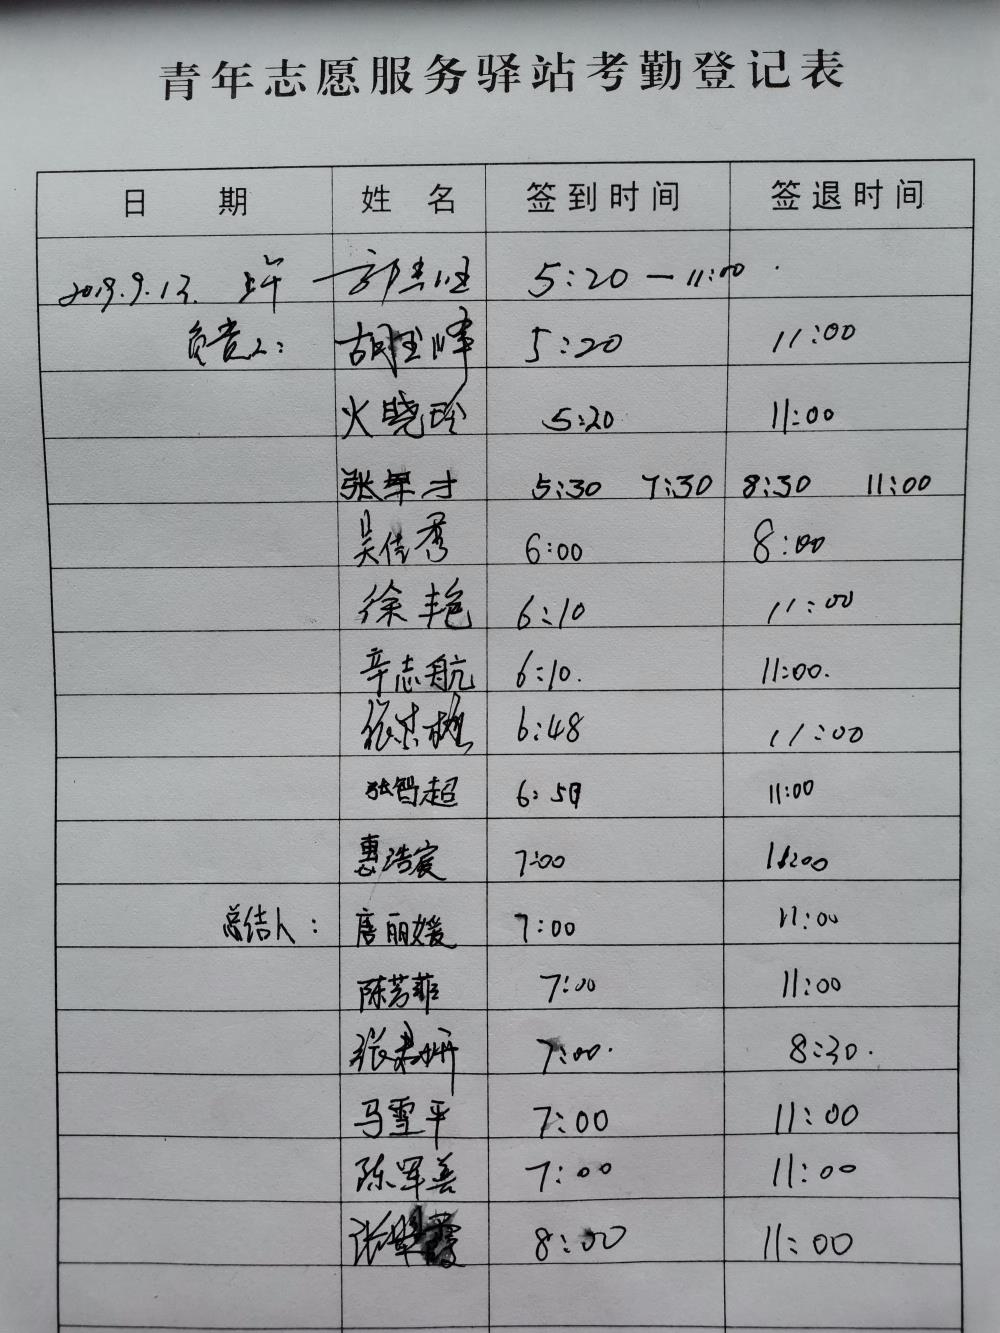 青年志愿服务驿站考勤登记表
日 期 姓 名 签到时间 签退时间
2019.9.13. 上午 5:20 — 11:00
负责人: 胡玉峰 5:20 11:00
火晓玲 5:20 11:00
张军才 5:30 7:30 8:30 11:00
吴佳秀 6:00 8:00
徐艳 6:10 11:00
辛志航 6:10. 11:00.
张 6:48 11:00
张智超 6:50 11:00
惠浩宸 7:00 11:00
总结人: 唐丽媛 7:00 11:00
陈芳菲 7:00 11:00
张 妍 7:00. 8:30.
马雪平 7:00 11:00
陈军善 7:00 11:00
张翠霞 8:00 11:00